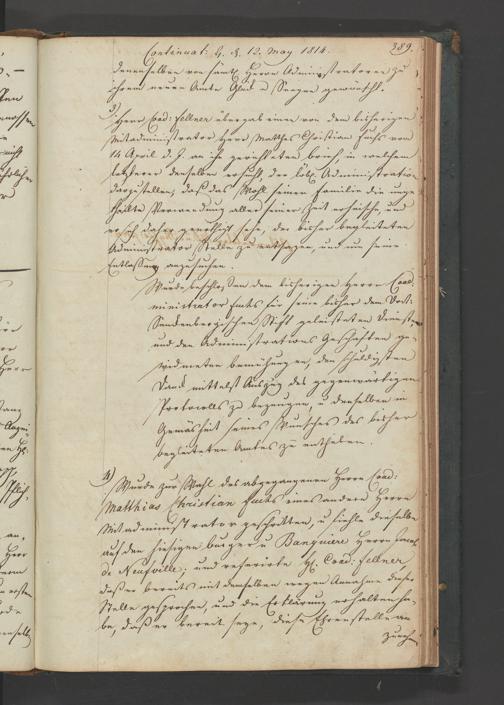 Continuat: d. d. 12. May 1814. 389.
denenselben von sämtl. Herrn Administratoren zu
ihrem neuen Amte Glück u Seegen gewünscht.
3)
Herr Coad. Fellner übergab einen von dem bisherigen
Mitadministrator Herr Matthes Christian Fuchs von
14 April d. J. an ihn gerichteten Brief, in welchem
letzterer denselben ersucht, der löbl. Administration
darzustellen, daß das Wohl seiner Familie die unge
theilte Verwendung aller seiner Zeit erheische, und
er sich daher genöthigt sehe, der bisher begleiteten
Administrator Stelle zu entsagen, und um seine
Entlassung anzusuchen.
Wurde beschlossen dem bisherigen Herrn Coad
ministrator Fuchs für seine bisher dem Dr.
Senckenbergischen Stift geleisteten Dienste
und den Administrations Geschäften ge
widmeten bemühungen, den schuldigsten
Dank mittelst Auszug des gegenwärtigen
Protocolls zu bezeugen, u denselben in
Gemäßheit seines Wunsches des bisher
begleiteten Amtes zu entheben.
4) Wurde zur Wahl des abgegangenen Herrn Coad:
Matthias Christian Fuchs eines andern Herrn
Mitadministrator geschritten, u fiehle dieselbe
auf den hiesigen burger u Banquier Herrn Jacob
de Neufville; und referirte H. Coad. Fellner
daß er bereits mit demselben wegen Annahme dieser
Stelle gesprochen, und die Erklärung erhalten ha-
be, daß er bereit seye, diese Ehrenstelle an
zuneh